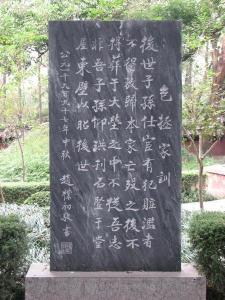 包拯家訓
後世子孫仕宦有犯贓濫者
不得放歸本家亡歿之後不
得葬于大塋之中不從吾志
非吾子孫仰珙刊石豎于堂
屋東壁以詔後世
年中秋 趙樸初敬書